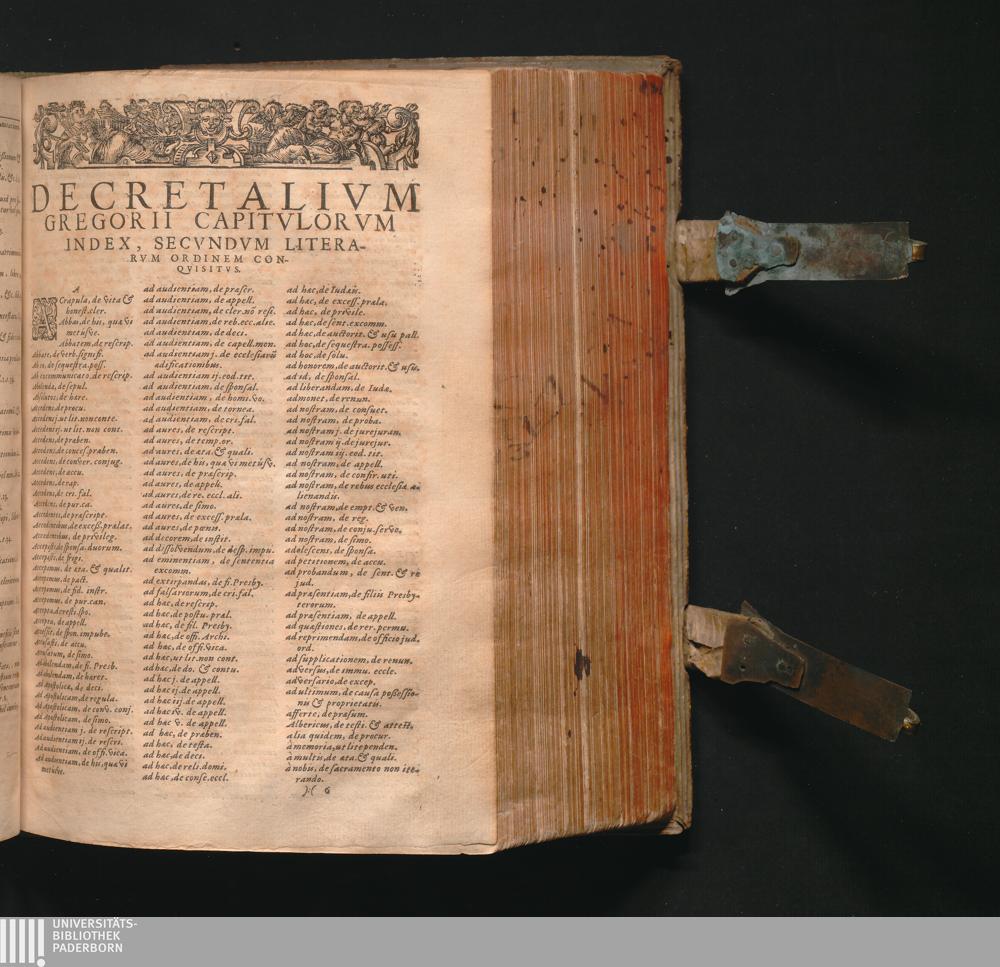 DECRETALIVM
GREGORII CAPITVLORVM
INDEX, SECVNDVM LITERA-
RVM ORDINEM CON-
QVISITVS.
A
A Crapula, de vita &
honest. cler.
Abbas, de his, quæ vi
metusve.
Abbatem, de rescrip.
Abbate, de verb. signifi.
de sequestra. poss.
Ab excommunicato, de rescrip.
Abolenda, de sepul.
de hære.
Accedens, de procu.
Accedens j. ut lit. non conte.
Accedens ij. ut lit. non cont.
Accedens, de præben.
Accedens, de conces. præben.
Accedens, de conver. conjug.
Accedens, de accu.
Accedens, de rap.
Accedens, de cri. fal.
Accedens, de pur. ca.
Accedentes, de præscript.
Accedentibus, de excess. prælat.
Accedentibus, de privileg.
Accepisti, de sponsa. duorum.
Accepisti, de frigi.
Accepimus, de æta. & qualit.
Accepimus, de pact.
Accepimus, de fid. instr.
Accepimus, de pur. can.
Accepta, de resti. spo.
Accepta, de appell.
Accessit, de spon. impube.
Accusasti, de accu.
Accusatum, de simo.
Ad abolendam, de fi. Presb.
Ad abolendam, de hæret.
Ad apostolica, de deci.
Ad Apostolicam, de regula.
Ad Apostolicam, de conv. conj.
Ad Apostolicam, de simo.
Ad audientiam j. de rescript.
Ad audientiam ij. de rescri.
Ad audientiam, de offi. vica.
Ad audientiam, de his, quæ vi
metusve.
ad audientiam, de præscr.
ad audientiam, de appell.
ad audientiam, de cler. nō resi.
ad audientiam, de reb. ecc. alie.
ad audientiam, de deci.
ad audientiam, de capell. mon.
ad audientiam j. de ecclesiarū
ædificationibus.
ad audientiam ij. eod. tit.
ad audientiam, de sponsal.
ad audientiam, de homi. vo.
ad audientiam, de tornea.
ad audientiam, de cri. fal.
ad aures, de rescript.
ad aures, de temp. or.
ad aures, de æta. & quali.
ad aures, de his, quæ vi metusv.
ad aures, de præscrip.
ad aures, de appell.
ad aures, de re. eccl. ali.
ad aures, de simo.
ad aures, de excess. præla.
ad aures, de pœnis.
ad decorem, de instit.
ad dissolvendum, de desp. impu.
ad eminentiam, de sententia
excomm.
ad extirpandas, de fi. Presby.
ad falsariorum, de cri. fal.
ad hæc, de rescrip.
ad hæc, de postu. præl.
ad hæc, de fil. Presby.
ad hæc, de offi. Archi.
ad hæc, de offi. vica.
ad hæc, ut lit. non cont.
ad hæc, de do. & contu.
ad hæc j. de appell.
ad hæc ij. de appell.
ad hæc iij. de appell.
ad hæc iv. de appell.
ad hæc v. de appell.
ad hæc, de præben.
ad hæc, de testa.
ad hæc, de deci.
ad hæc, de reli. domi.
ad hæc, de consc. eccl.
ad hæc, de Iudæis.
ad hæc, de excess. præla.
ad hæc, de privile.
ad hæc, de sent. excomm.
ad hæc, de auctorit. & usu pall.
ad hoc, de sequestra. possess.
ad hoc, de solu.
ad honorem, de auctorit. & usu.
ad id, de sponsal.
ad liberandam, de Iudæ.
admonet, de renun.
ad nostram, de consuet.
ad nostram, de proba.
ad nostram j. de jurejuran.
ad nostram ij. de jurejur.
ad nostram iij. eod. tit.
ad nostram, de appell.
ad nostram, de confir. uti.
ad nostram, de rebus ecclesiæ a-
lienandis.
ad nostram, de empt. & ven.
ad nostram, de reg.
ad nostram, de conju. servo.
ad nostram, de simo.
adolescens, de sponsa.
ad petitionem, de accu.
ad probandum, de sent. & re
jud.
ad præsentiam, de filiis Presby-
terorum.
ad præsentiam, de appell.
ad quæstiones, de rer. permu.
ad reprimendam, de officio jud.
ord.
ad supplicationem, de renun.
adversus, de immu. eccle.
adversario, de excep.
ad ultimum, de causa possessio-
nis & proprietatis.
afferte, de præsum.
Albericus, de testi. & attest.
alia quidem, de procur.
à memoria, ut lite penden.
à multis, de æta. & quali.
à nobis, de sacramento non ite-
rando.
):( 6
UNIVERSITÄTS-
BIBLIOTHEK
PADERBORN